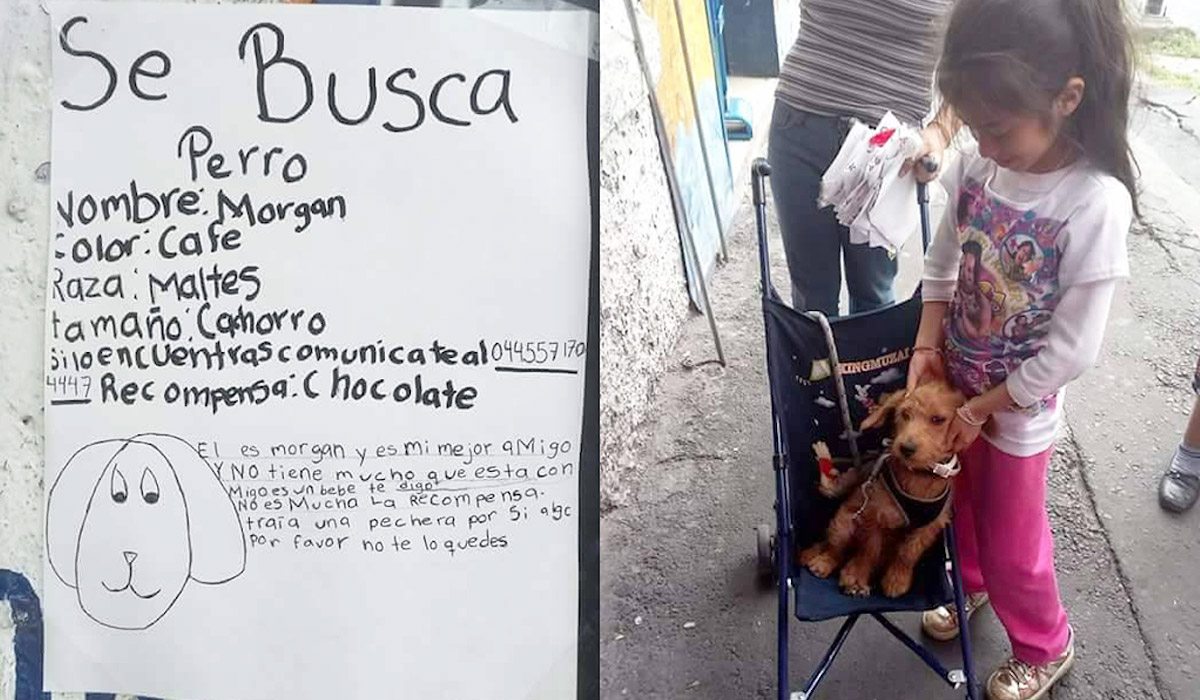 Se Busca
Perro
Nombre: Morgan
Color: Cafe
Raza: Maltes
tamaño: Cachorro
Si lo encuentras comunicate al 044557170
4447 Recompensa: Chocolate
El es morgan y es mi mejor aMigo
Y NO tiene mucho que esta con
Migo es un bebe te digo
No es Mucha La Recompensa.
traia una pechera por si algo
Por favor no te lo quedes
KINGMUZAI